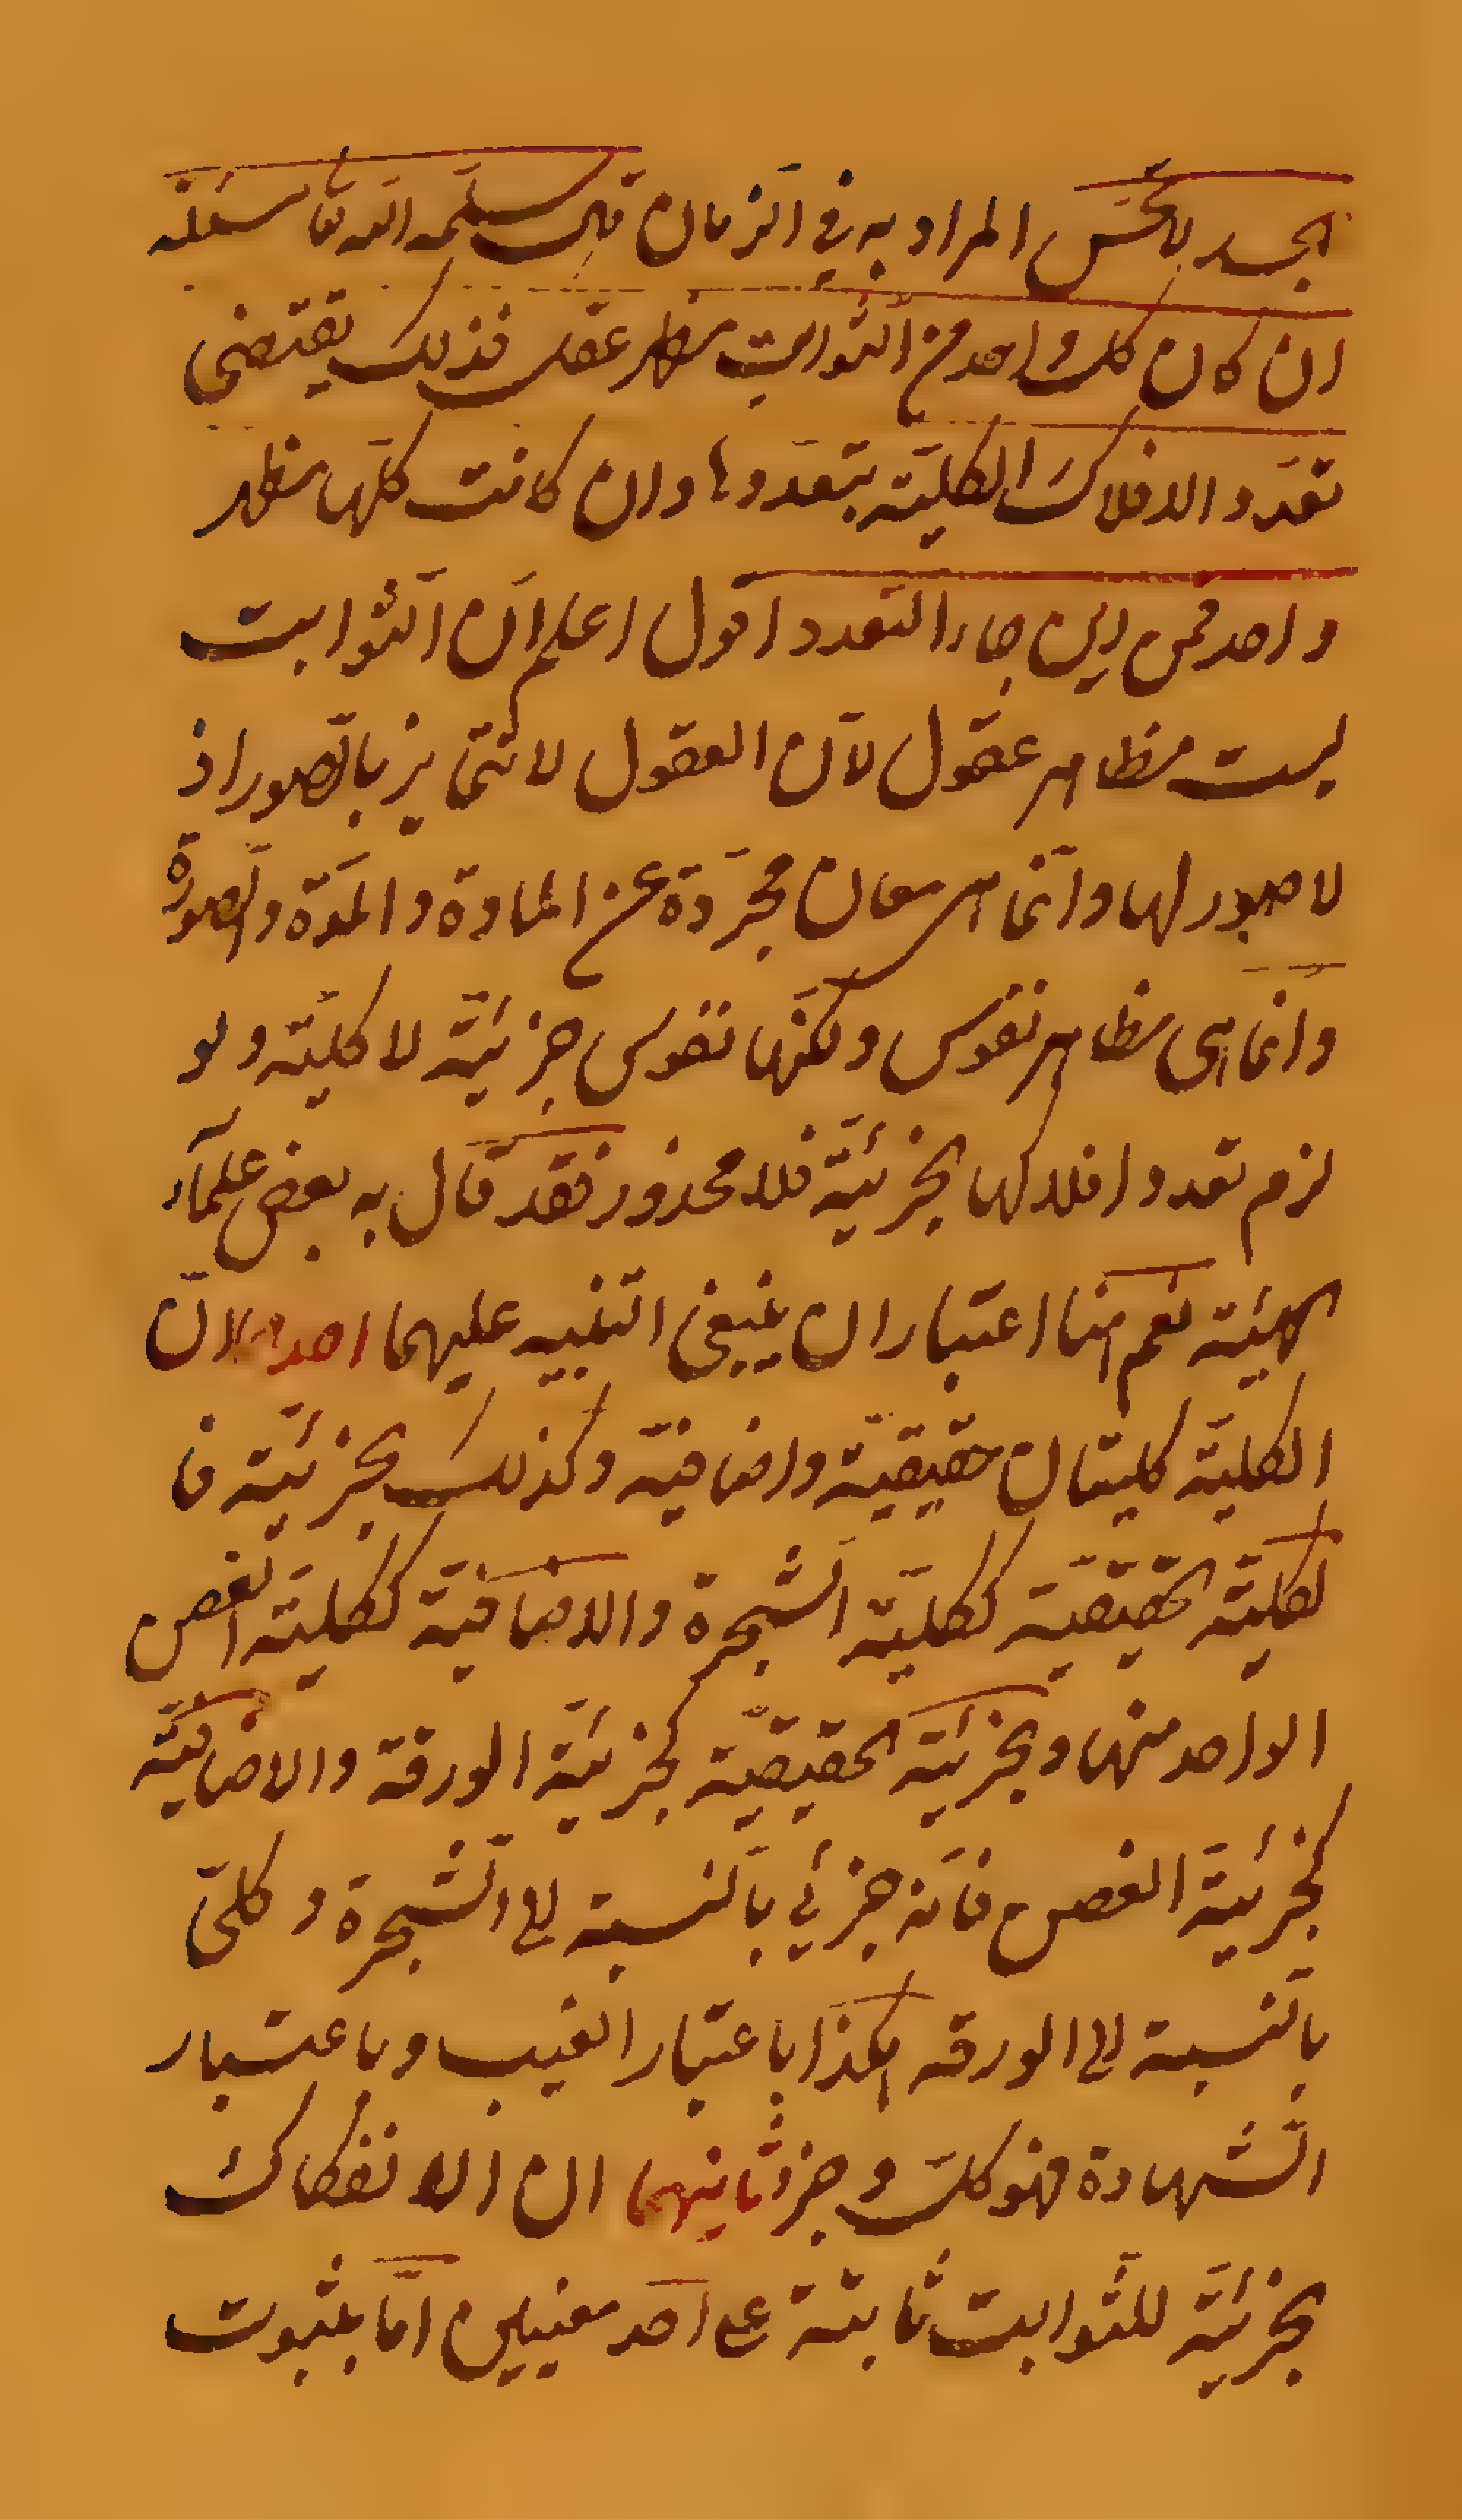 الجسد بالحسّ المراد به في الزمان قال سلّمه الله تعالى مسئلة
ان كان كل واحد من الثّوابت مظهر عقل فذلك يقتضى
تعدّد الافلاك الكليّة بتعدّدها وان كانت كلّها مظهر
واحد فمن اين جاء التعدد اقول اعلم انّ الثّوابت
ليست مظاهر عقول لانّ العقول لا تتمايز بالصّور اذ
لا صور لها وانّما هي معان مجرّدة عن المادة والمدّة والصّورة
وانما هي مظاهر نفوس ولكنّها نفوس جزئيّة لا كليّة ولو
لزم تعدد افلاكها الجزئيّة فلا محذور فقد قال به بعض علمآء
الهيئة نعم هنا اعتباران ينبغى التّنبيه عليهما احدهما انّ
الكليّة كليتان حقيقيّة واضافيّة وكذلك الجزئيّة فا
لكليّة الحقيقيّة ككليّة الشّجرة والاضافيّة ككليّة الغصن
الواحد منها والجزئيّة الحقيقيّة كجزئيّة الورقة والاضافيّة
كجزئيّة الغصن فانّه جزئي بالنّسبة الى الشّجرة وكلىّ
بالنّسبة الى الورقه هكذا باعتبار الغيب وباعتبار
الشّهادة فهو كلّ وجزء ثانيهما ان الافلاك
الجزئيّة للثّوابت ثابتة على احد معنيين امّا بثبوت